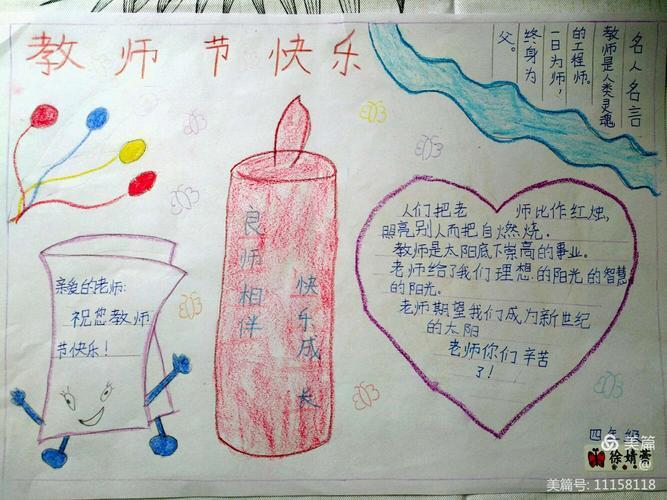 教师节快乐
名人名言
教师是人类灵魂
的工程师。
一日为师，
终身为
父。
亲爱的老师：
祝您教师
节快乐！
良师相伴
快乐成长
人们把老 师比作红烛，
照亮别人而把自燃烧。
教师是太阳底下崇高的事业。
老师给了我们理想的阳光的智慧
的阳光。
老师期望我们成为新世纪
的太阳
老师你们辛苦
了！
四年级
徐婧萱
美篇
美篇号：11158118